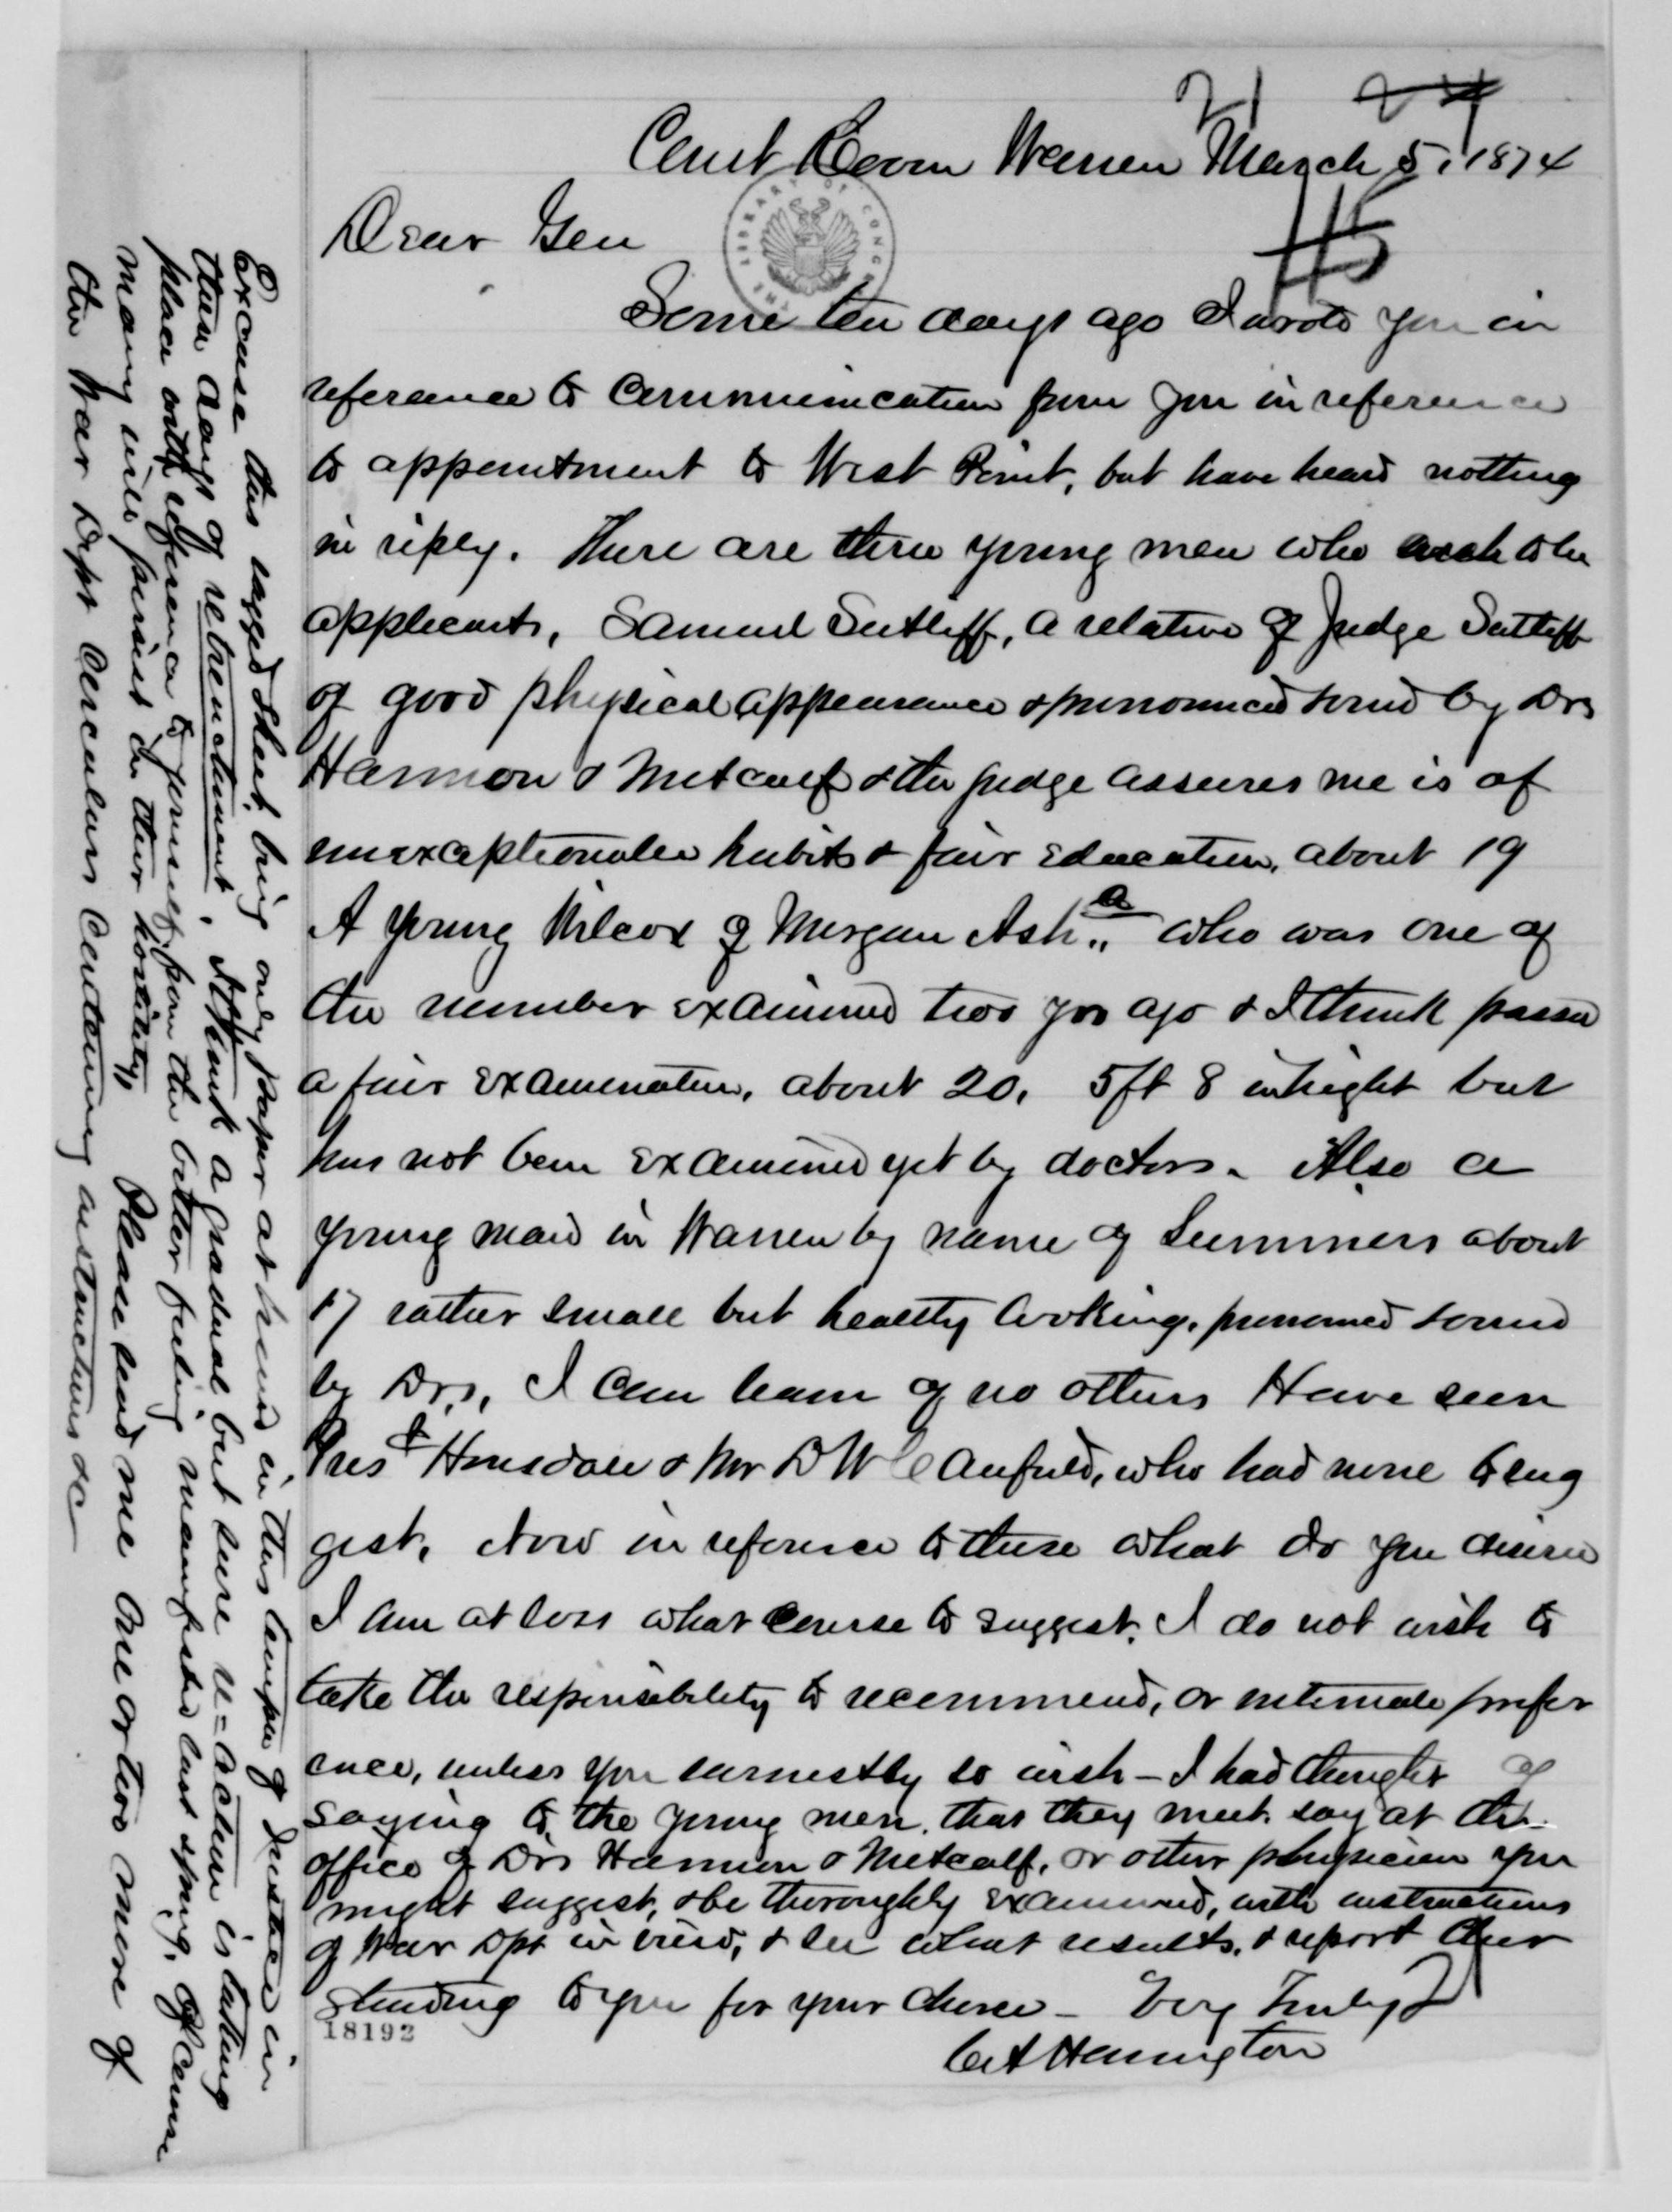 21 24
Court Room Warren March 5, 1874
#5
THE LIBRARY OF CONGRESS
Dear Gen
Some ten days ago I wrote you in
reference to communication from you in reference
to appointment to West Point, but have heard nothing
in reply. There are three young men who wish to be
applicants, Samuel Sutliff, a relative of Judge Sutliff
of good physical appearance & pronounced sound by Drs
Harmon & Metcalf & the judge assures me is of
unexceptionable habits & fair education, about 19
A young Wilcox of Morgan Ash.a who was one of
the number examined two yrs ago & I think passed
a fair examination, about 20, 5ft 8 in hight but
has not been examined yet by doctors. Also a
young man in Warren by name of Summers about
17 rather small but healthy looking, pronounced sound
by Drs, I can learn of no others Have seen
Prest Hinsdale & Mr D W Canfield, who had none to sug
gest, Now in reference to these what do you desire
I am at loss what course to suggest, I do not wish to
take the responsibility to recommend, or intimate prefer
ence, unless you earnestly so wish - I had thought of
saying to the young men, that they meet say at the
office of Drs Harmon & Metcalf, or other physician you
might suggest, & be thoroughly examined, with instructions
of War Dpt in view, & see what results, & report their
standing to you for your choice - Very Truly
C A Harrington
18192
Excuse this ragged sheet, being only paper at hand in this temple of Justice in
these days of retrenchment, I think a gradual but sure re=action is taking
place with reference to yourself, from the bitter feeling manifested last spring, Of course
many will persist in their hostility, Please send me one or two more of
the War Dept Circulars containing instructions &c